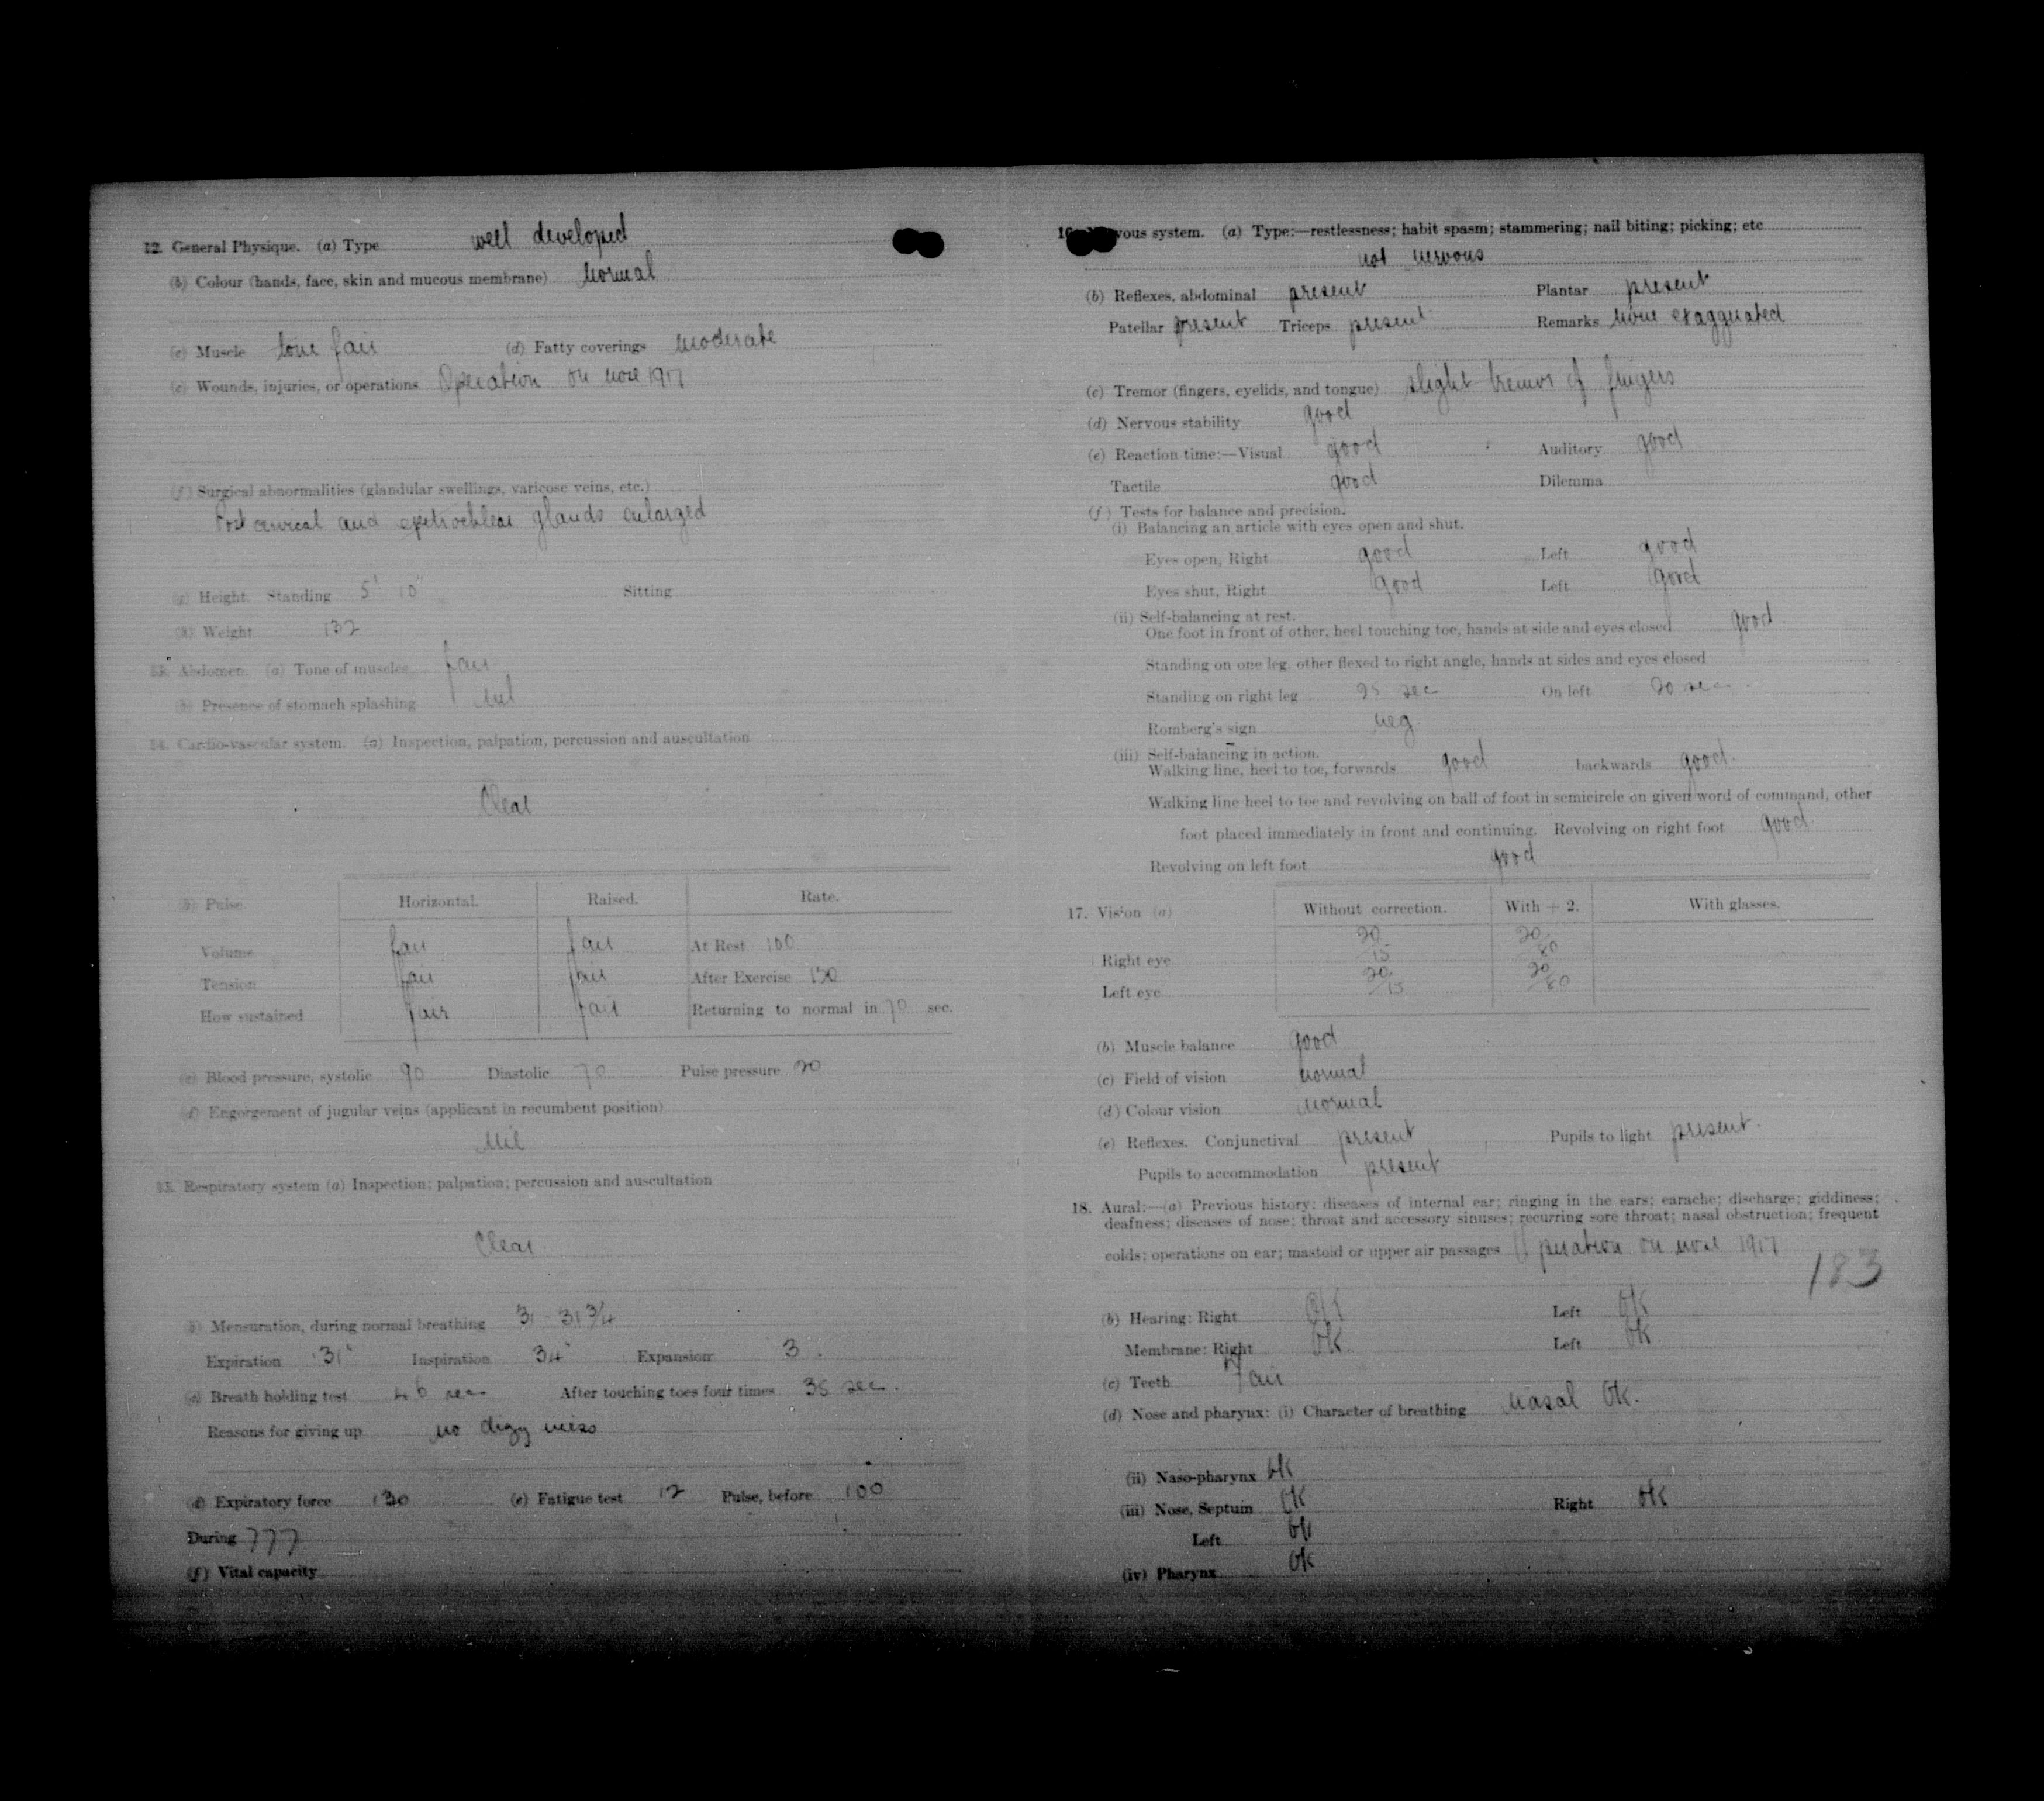 12. General Physique. (a) Type well developed
(b) Colour (hands, face, skin and mucous membrane) Normal
(c) Muscle tone fair (d) Fatty coverings moderate
(e) Wounds, injuries, or operations Operation on nose 1917
(f) Surgical abnormalities (glandular swellings, varicose veins, etc.)
Post cervical and epitrochlear glands enlarged
(g) Height. Standing 5' 10" Sitting
(h) Weight 132
13. Abdomen. (a) Tone of muscles fair
(b) Presence of stomach splashing Nil
14. Cardio-vascular system. (a) Inspection, palpation, percussion and auscultation
Clear
(b) Pulse. Horizontal. Raised. Rate.
Volume fair fair At Rest 100
Tension fair fair After Exercise 130
How sustained fair fair Returning to normal in 70 sec.
(c) Blood pressure, systolic 90 Diastolic 70 Pulse pressure 20
(d) Engorgement of jugular veins (applicant in recumbent position)
Nil
15. Respiratory system (a) Inspection; palpation; percussion and auscultation
Clear
(b) Mensuration, during normal breathing 31 - 31 3/4
Expiration 31" Inspiration 34" Expansion 3.
(c) Breath holding test 46 sec After touching toes four times 35 sec.
Reasons for giving up no dizzy ness
(d) Expiratory force 130 (e) Fatigue test 12 Pulse, before 100
During 777
(f) Vital capacity
16. Nervous system. (a) Type:—restlessness; habit spasm; stammering; nail biting; picking; etc
not nervous
(b) Reflexes, abdominal present Plantar present
Patellar present Triceps present Remarks None exaggerated
(c) Tremor (fingers, eyelids, and tongue) slight tremor of fingers
(d) Nervous stability good
(e) Reaction time:—Visual good Auditory good
Tactile good Dilemma
(f) Tests for balance and precision.
(i) Balancing an article with eyes open and shut.
Eyes open, Right good Left good
Eyes shut, Right good Left good
(ii) Self-balancing at rest.
One foot in front of other, heel touching toe, hands at side and eyes closed good
Standing on one leg, other flexed to right angle, hands at sides and eyes closed
Standing on right leg 25 sec On left 20 sec
Romberg's sign neg.
(iii) Self-balancing in action.
Walking line, heel to toe, forwards good backwards good.
Walking line heel to toe and revolving on ball of foot in semicircle on given word of command, other
foot placed immediately in front and continuing. Revolving on right foot good.
Revolving on left foot good
17. Vision (a) Without correction. With + 2. With glasses.
Right eye 20/15 20/80
Left eye 20/15 20/80
(b) Muscle balance good
(c) Field of vision Normal
(d) Colour vision Normal
(e) Reflexes. Conjunctival present Pupils to light present.
Pupils to accommodation present
18. Aural:—(a) Previous history: diseases of internal ear; ringing in the ears; earache; discharge; giddiness;
deafness; diseases of nose; throat and accessory sinuses; recurring sore throat; nasal obstruction; frequent
colds; operations on ear; mastoid or upper air passages Operation on nose 1917
183
(b) Hearing: Right OK Left OK
Membrane: Right OK Left OK
(c) Teeth Fair
(d) Nose and pharynx: (i) Character of breathing Nasal OK.
(ii) Naso-pharynx OK
(iii) Nose, Septum OK Right OK
Left OK
(iv) Pharynx OK